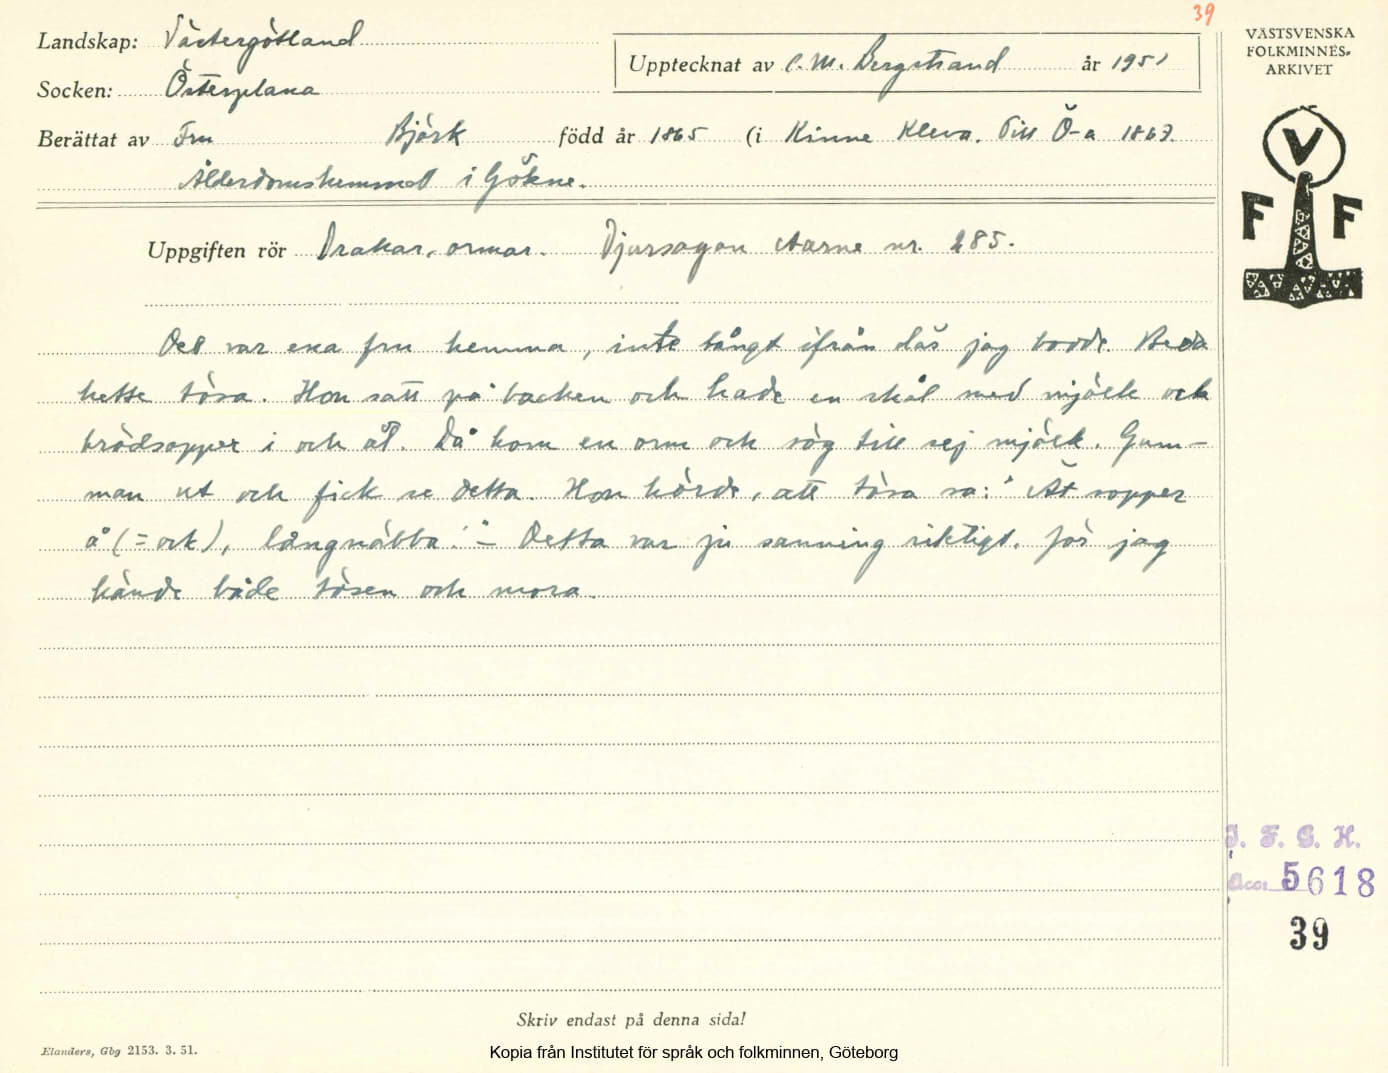 39
Landskap: Västergötland
Socken: Österplana
Upptecknat av C. M. Bergstrand år 1951
VÄSTSVENSKA
FOLKMINNES-
ARKIVET
Berättat av Fru Björk född år 1865 (i Kinne Kleva. Till Ö-a 1863.
Ålderdomshemmet i Gökne.
V
F F
Uppgiften rör Drakar, ormar. Djursagan Aarne nr. 285.
Det var ena fru hemma, inte långt ifrån däs jag bodde. Beda
hette tösa. Hon satt på backen och hade en skål med mjölk och
brödsopper i och åt. Då kom en orm och sög till sej mjölk. Gum-
man ut och fick se detta. Hon hörde, att tösa sa: "Ät sopper
å (= ock), långnäbba!" – Detta var ju sanning riktigt, för jag
kände både tösen och mora.
I. F. G. H.
Acc. 5618
39
Skriv endast på denna sida!
Elanders, Gbg 2153. 3. 51.
Kopia från Institutet för språk och folkminnen, Göteborg